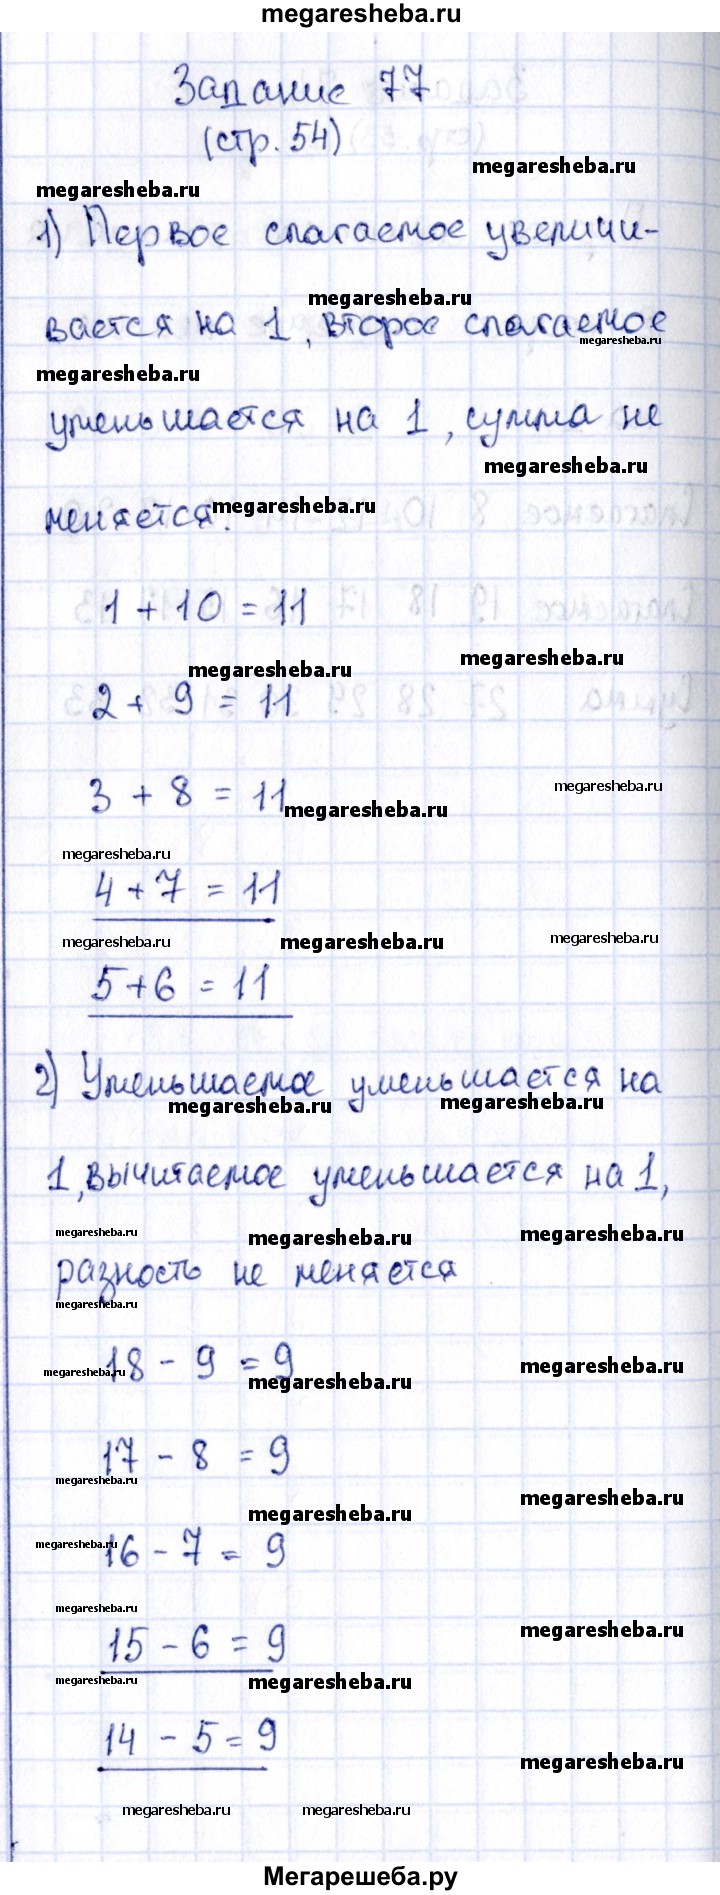 megaresheba.ru
Задание 77
(стр. 54)
megaresheba.ru
megaresheba.ru
1) Первое слагаемое увеличи-
megaresheba.ru
вается на 1, второе слагаемое
megaresheba.ru
megaresheba.ru
уменьшается на 1, сумма не
megaresheba.ru
меняется.
megaresheba.ru
1 + 10 = 11
megaresheba.ru
megaresheba.ru
2 + 9 = 11
3 + 8 = 11
megaresheba.ru
megaresheba.ru
megaresheba.ru
4 + 7 = 11
megaresheba.ru
megaresheba.ru
megaresheba.ru
5 + 6 = 11
2) Уменьшаемое уменьшается на
megaresheba.ru
megaresheba.ru
1, вычитаемое уменьшается на 1,
megaresheba.ru
megaresheba.ru
megaresheba.ru
разность не меняется
megaresheba.ru
18 - 9 = 9
megaresheba.ru
megaresheba.ru
megaresheba.ru
17 - 8 = 9
megaresheba.ru
megaresheba.ru
megaresheba.ru
16 - 7 = 9
megaresheba.ru
megaresheba.ru
15 - 6 = 9
megaresheba.ru
megaresheba.ru
megaresheba.ru
14 - 5 = 9
megaresheba.ru
megaresheba.ru
megaresheba.ru
Мегарешеба.ру